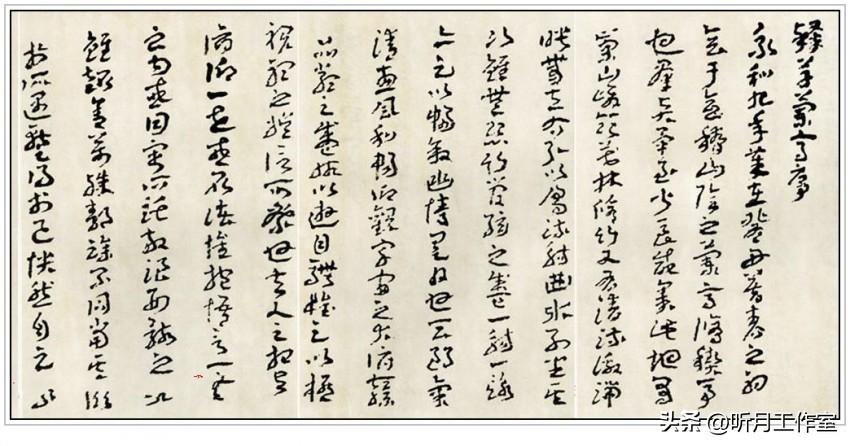 草蘭亭序
永和九年歲在癸丑暮春之初
會于會稽山陰之蘭亭脩禊事
也羣賢畢至少長咸集此地有
崇山峻領茂林脩竹又有清流激湍
映帶左右引以為流觴曲水列坐其
次雖無絲竹管弦之盛一觴一詠
亦足以暢敘幽情是日也天朗氣
清惠風和暢仰觀宇宙之大俯察
品類之盛所以遊目騁懷足以極
視聽之娛信可樂也夫人之相與
俯仰一世或取諸懷抱悟言一室
之內或因寄所託放浪形骸之外
雖趣舍萬殊靜躁不同當其欣
於所遇暫得於己快然自足不
头条 @听月工作室